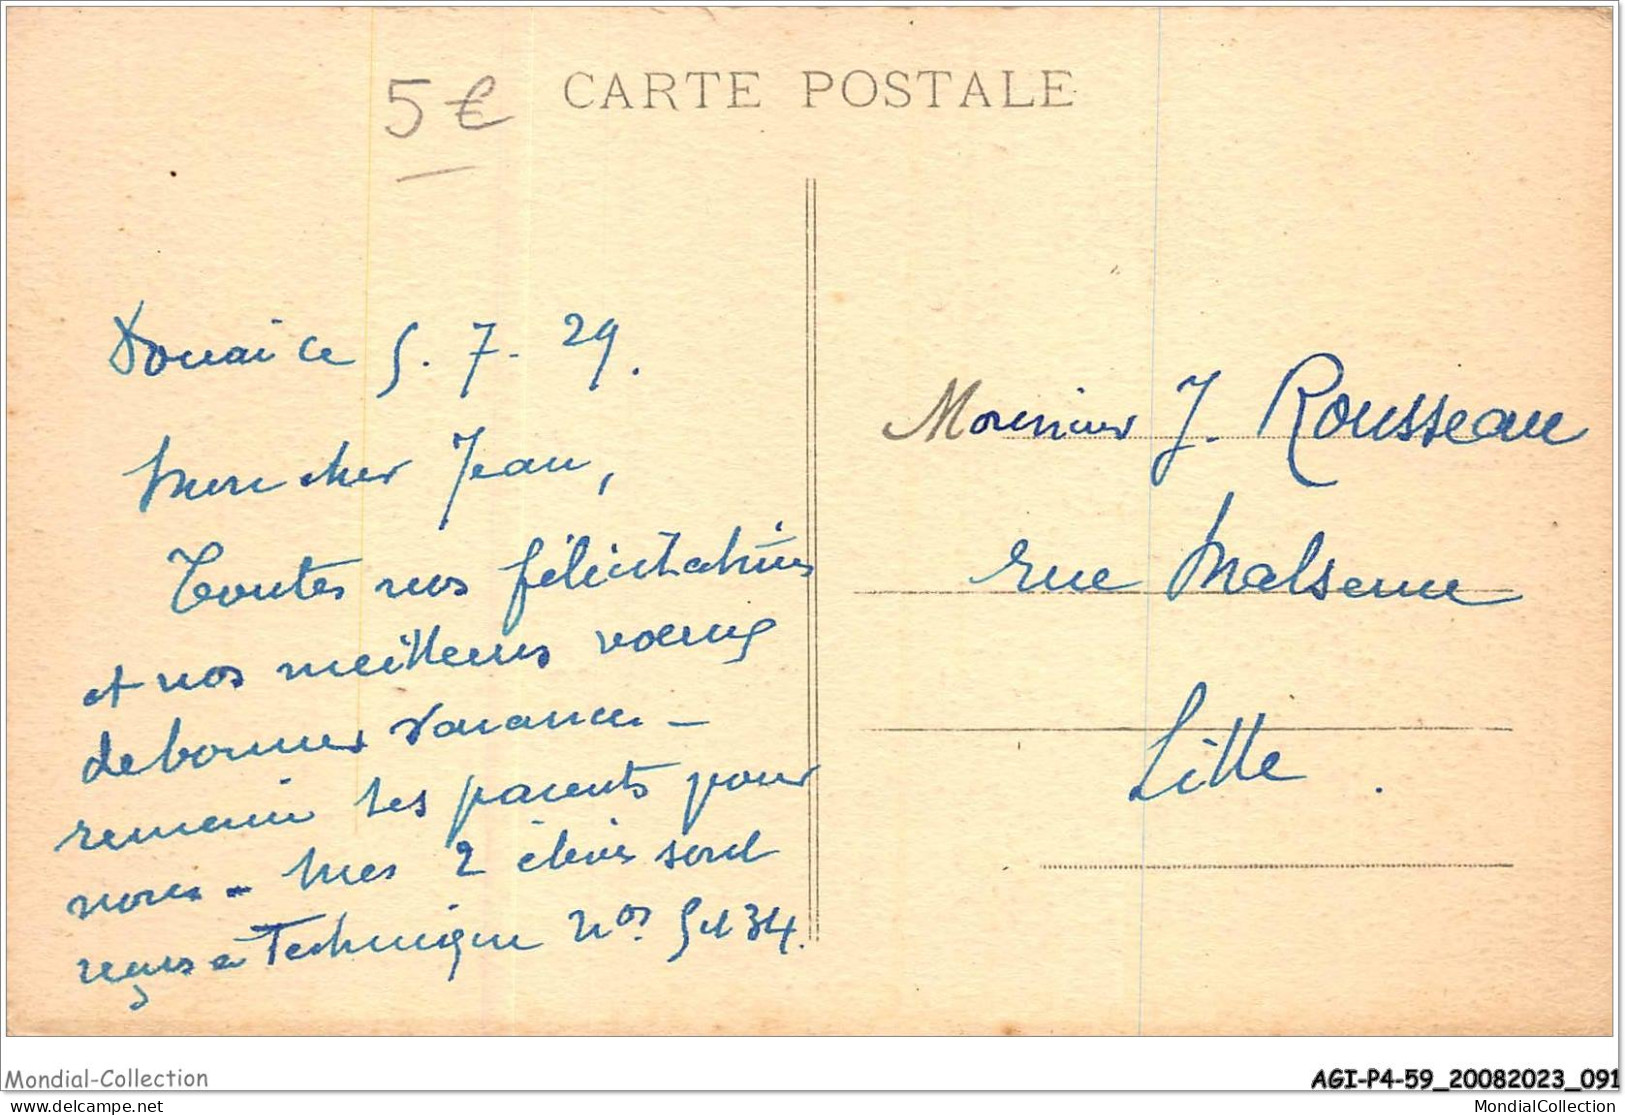 5 €
CARTE POSTALE
Douai ce 5. 7. 29.
Mon cher Jean,
Toutes nos félicitations
et nos meilleurs voeux
de bonnes vacances -
remercie tes parents pour
nous - Mes 2 élèves sont
reçus à Technique nos. 5 et 34.
Monsieur J. Rousseau
rue Malsence
Lille.
Mondial-Collection
AGI-P4-59_20082023_091
delcampe.net
MondialCollection